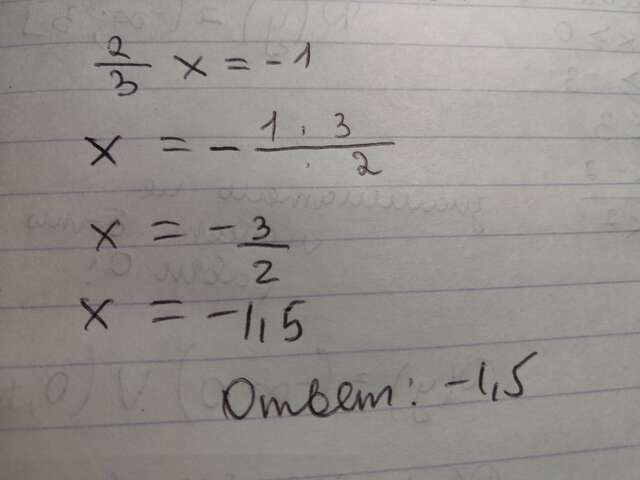 2/3 x = -1
x = - 1 · 3 / 2
x = - 3/2
x = -1,5
Ответ: -1,5